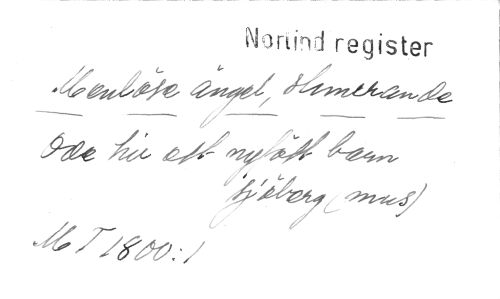 Norlind register
Menlösa ängel, slumrande
Ode hit ett nyfött barn
Sjöberg (mus)
M T 1800:1